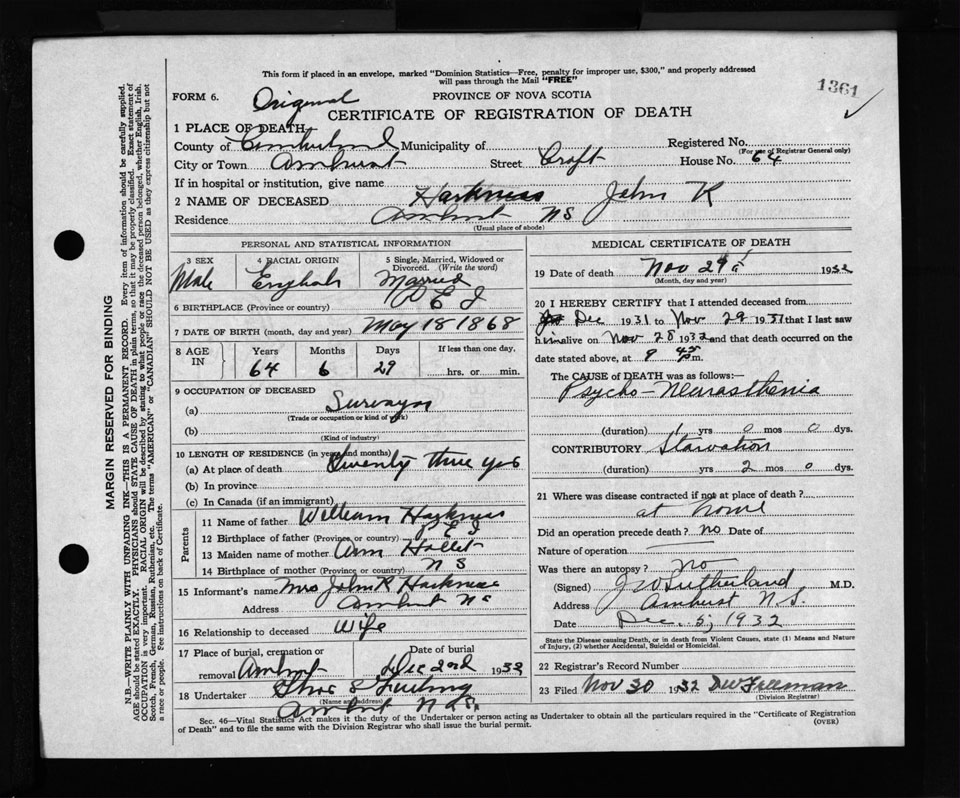 This form if placed in an envelope, marked "Dominion Statistics—Free, penalty for improper use, $300," and properly addressed
will pass through the Mail "FREE"
1361
FORM 6. Original
PROVINCE OF NOVA SCOTIA
CERTIFICATE OF REGISTRATION OF DEATH
1 PLACE OF DEATH
County of Cumberland Municipality of Registered No.
(For use of Registrar General only)
City or Town Amherst Street Croft House No. 64
If in hospital or institution, give name
2 NAME OF DECEASED Harkness John K
Residence Amherst NS
(Usual place of abode)
PERSONAL AND STATISTICAL INFORMATION
3 SEX 4 RACIAL ORIGIN 5 Single, Married, Widowed or
Divorced. (Write the word)
Male English Married
6 BIRTHPLACE (Province or country) P E I
7 DATE OF BIRTH (month, day and year) May 18 1868
8 AGE IN Years Months Days If less than one day,
64 6 29 hrs. or min.
9 OCCUPATION OF DECEASED
(a)
(Trade or occupation or kind of work)
(b)
(Kind of industry)
10 LENGTH OF RESIDENCE (in years and months)
(a) At place of death twenty three yrs
(b) In province
(c) In Canada (if an immigrant)
Parents
11 Name of father William Harkness
12 Birthplace of father (Province or country) P E I
13 Maiden name of mother Ann Hollet
14 Birthplace of mother (Province or country) N S
15 Informant's name Mrs John K Harkness
Address Amherst NS
16 Relationship to deceased Wife
17 Place of burial, cremation or Date of burial
removal Amherst Dec 2nd 1932
18 Undertaker
(Name and address)
Amherst N.S.
MEDICAL CERTIFICATE OF DEATH
19 Date of death Nov 29 1932
(Month, day and year)
20 I HEREBY CERTIFY that I attended deceased from
Dec 1931 to Nov 29 1931 that I last saw
him alive on Nov 28 1932 and that death occurred on the
date stated above, at 9 45 m.
The CAUSE OF DEATH was as follows:—
Psycho-Neurasthenia
(duration) 1 yrs 0 mos 0 dys.
CONTRIBUTORY Starvation
(duration) yrs 2 mos 0 dys.
21 Where was disease contracted if not at place of death?
at home
Did an operation precede death? no Date of
Nature of operation
Was there an autopsy? No
(Signed) J W Sutherland M.D.
Address Amherst N.S.
Date Dec. 5, 1932
State the Disease causing Death, or in death from Violent Causes, state (1) Means and Nature
of Injury, (2) whether Accidental, Suicidal or Homicidal.
22 Registrar's Record Number
23 Filed Nov 30 1932
(Division Registrar)
Sec. 46—Vital Statistics Act makes it the duty of the Undertaker or person acting as Undertaker to obtain all the particulars required in the "Certificate of Registration
of Death" and to file the same with the Division Registrar who shall issue the burial permit. (OVER)
MARGIN RESERVED FOR BINDING
N.B.—WRITE PLAINLY WITH UNFADING INK—THIS IS A PERMANENT RECORD. Every item of information should be carefully supplied.
AGE should be stated EXACTLY. PHYSICIANS should STATE CAUSE OF DEATH in plain terms, so that it may be properly classified. Exact statement of
OCCUPATION is very important. RACIAL ORIGIN will be described by stating to what people or race the deceased person belonged, whether English, Irish,
Scotch, French, German, Russian, Ruthenian, etc. The terms "AMERICAN" or "CANADIAN" SHOULD NOT BE USED as they express citizenship but not
a race or people. See instructions on back of Certificate.